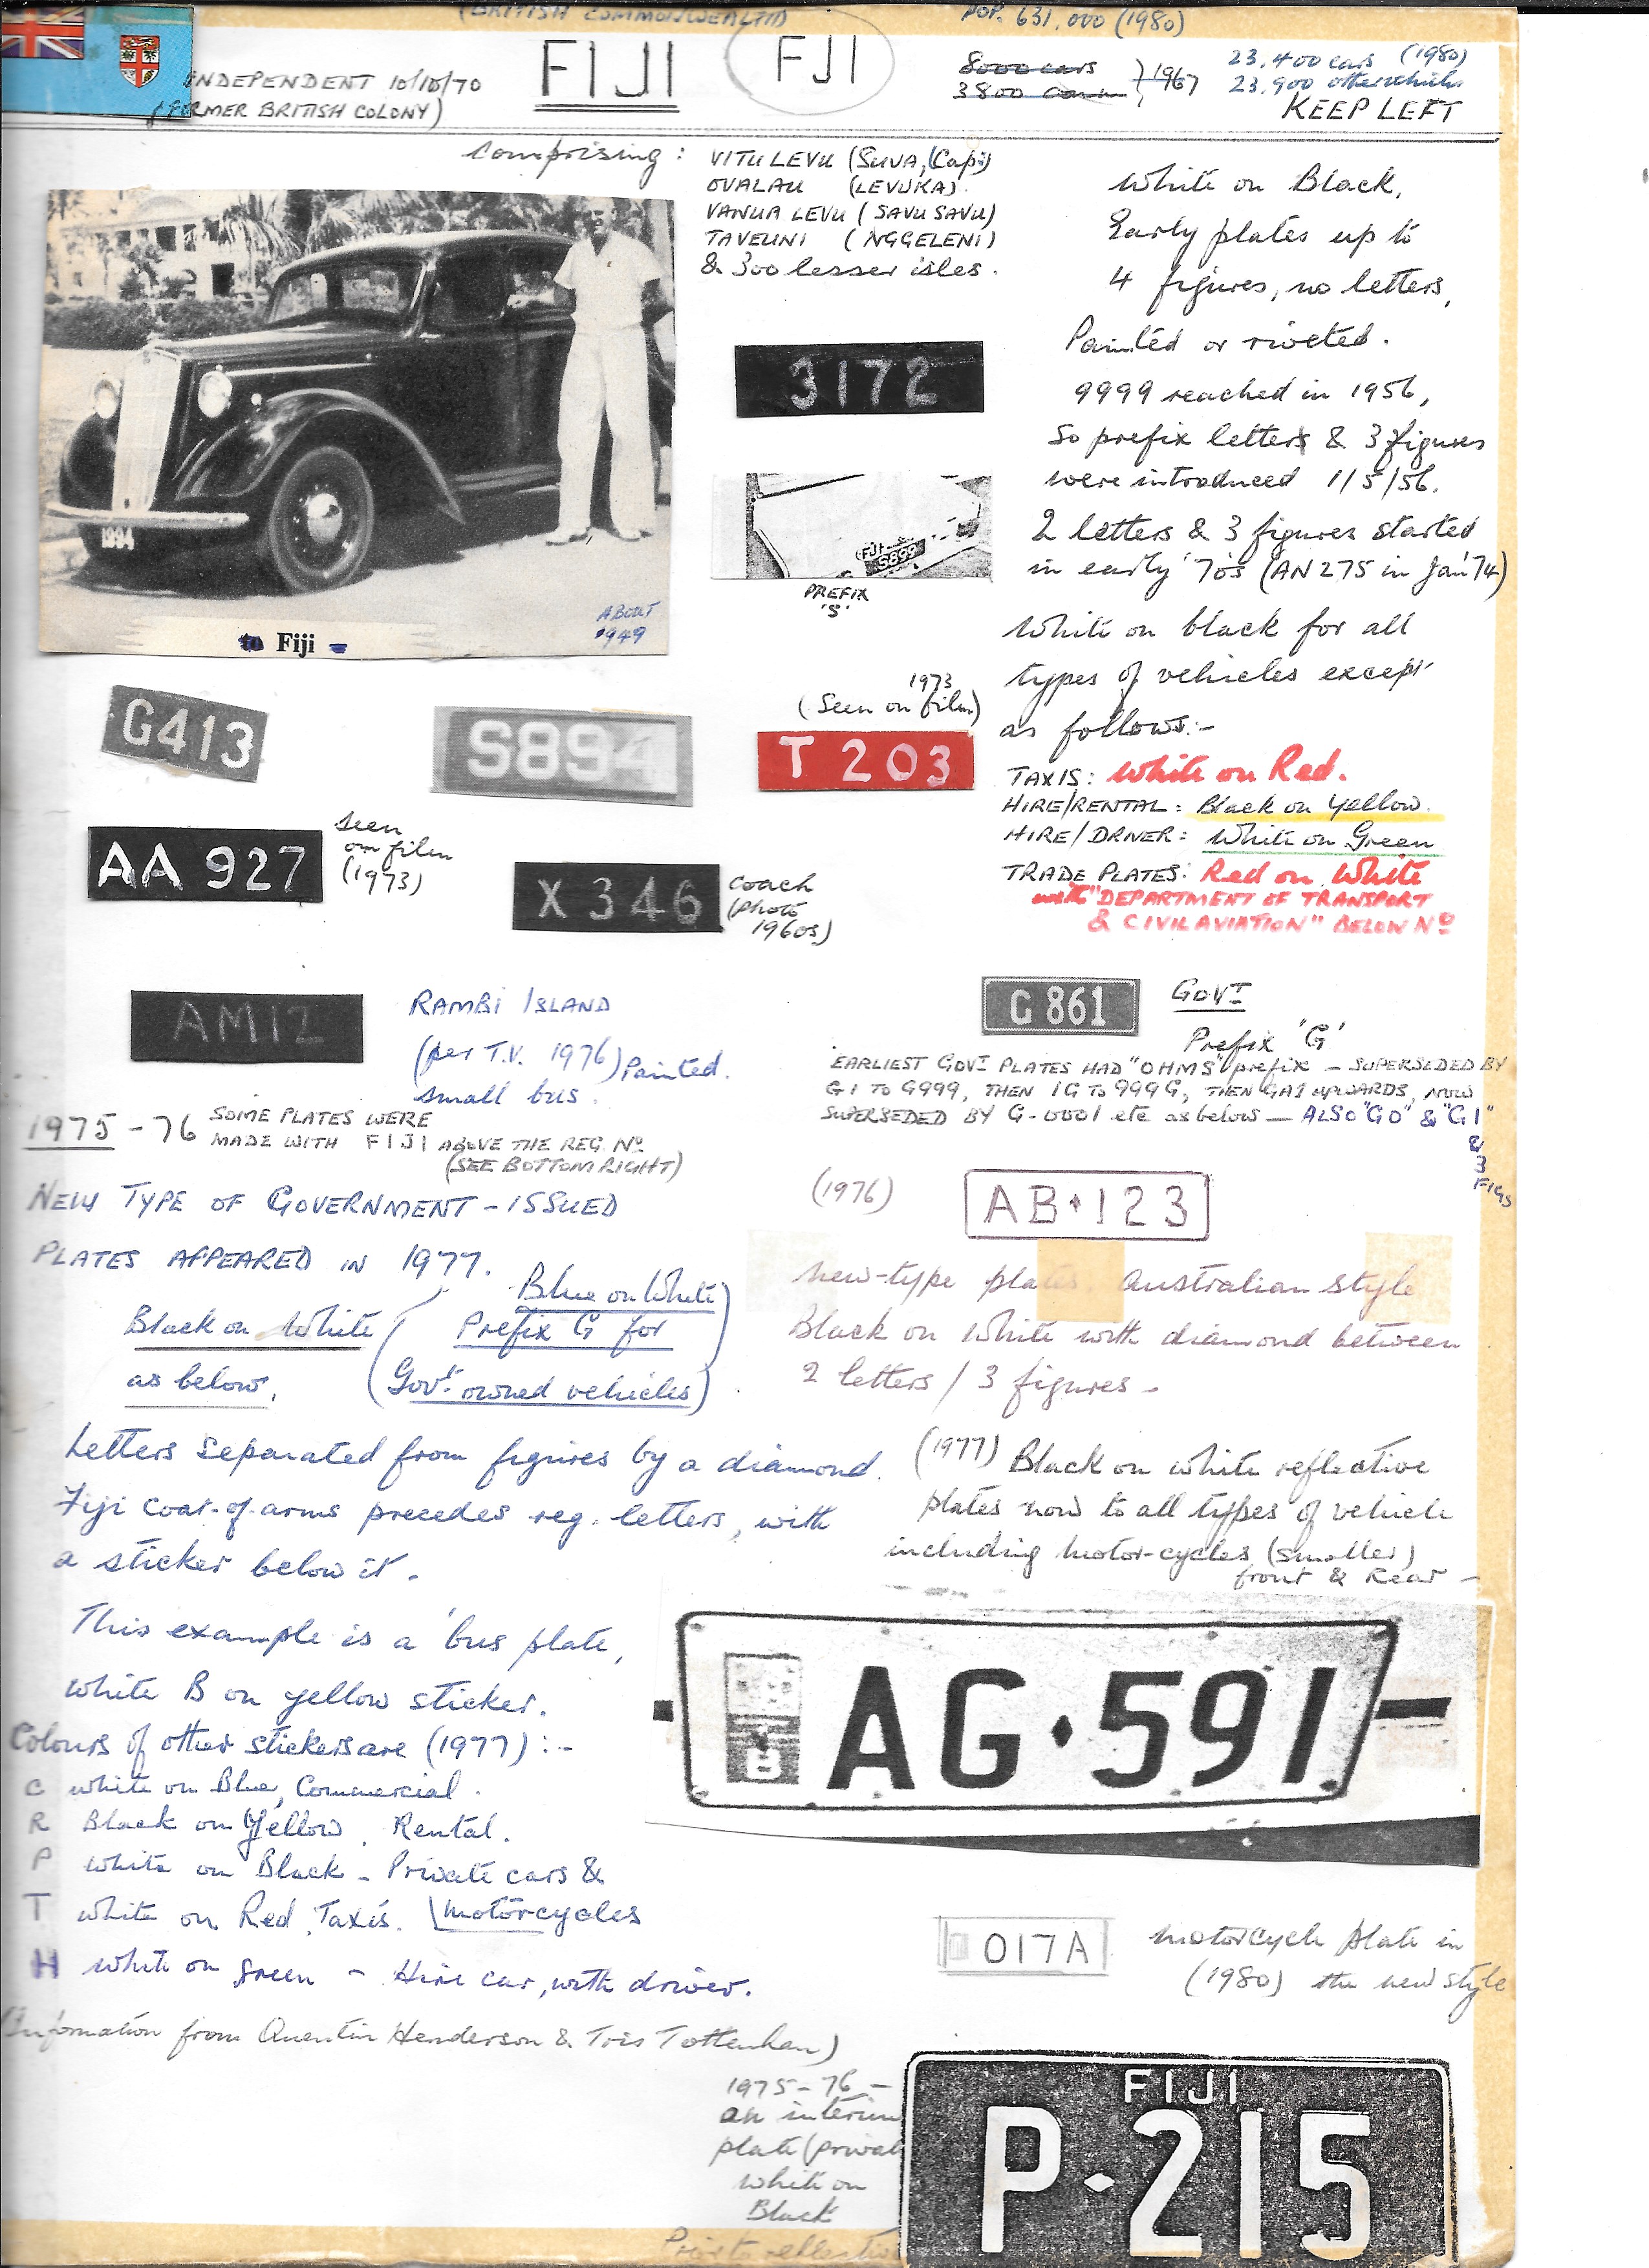 (BRITISH COMMONWEALTH)
POP. 631,000 (1980)
INDEPENDENT 10/10/70
(FORMER BRITISH COLONY)
FIJI
FJI
8000 cars
3800 comm
) 1967
23,400 cars (1980)
23,900 other vehicles
KEEP LEFT
comprising:
VITU LEVU (SUVA, (Cap)
OVALAU (LEVUKA).
VANUA LEVU (SAVU SAVU)
TAVEUNI (NGGELENI)
& 300 lesser isles.
White on Black.
Early plates up to
4 figures, no letters,
Painted or riveted.
9999 reached in 1956,
So prefix letters & 3 figures
were introduced 1/5/56.
2 letters & 3 figures started
in early '70s (AN 275 in Jan '74)
White on black for all
types of vehicles except
as follows:-
TAXIS: White on Red.
HIRE/RENTAL: Black on Yellow.
HIRE/DRIVER: White on Green
TRADE PLATES: Red on White
with "DEPARTMENT OF TRANSPORT
& CIVIL AVIATION" BELOW No
1994
to Fiji
ABOUT
1949
3172
FJI
S899
PREFIX
'S'
G413
S894
1973
(Seen on film)
T 203
AA 927
Seen
on film
(1973)
X 346
coach
(photo
1960s)
AM12
RAMBI ISLAND
(per T.V. 1976) Painted.
small bus.
G 861
GOVT
Prefix 'G'
EARLIEST GOVT PLATES HAD "OHMS" prefix – SUPERSEDED BY
G1 TO G999, THEN 1G TO 999G, THEN GA1 UPWARDS, NOW
SUPERSEDED BY G-0001 etc as below — ALSO "GO" & "G1"
&
3
FIGS
1975 - 76 SOME PLATES WERE
MADE WITH FIJI ABOVE THE REG. No
(SEE BOTTOM RIGHT)
NEW TYPE OF GOVERNMENT-ISSUED
PLATES APPEARED IN 1977.
Black on White
as below.
(Blue on White
Prefix G for
Govt owned vehicles).
(1976)
AB♦123
New-type plates Australian style
Black on White with diamond between
2 letters / 3 figures –
Letters separated from figures by a diamond.
Fiji coat-of-arms precedes reg. letters, with
a sticker below it.
(1977) Black on white reflective
plates now to all types of vehicle
including motor-cycles (smaller)
front & rear –
This example is a 'bus plate,
white B on yellow sticker.
Colours of other stickers are (1977) :-
C white on Blue, Commercial.
R Black on Yellow, Rental.
P white on Black – Private cars &
motorcycles
T white on Red, Taxis.
H white on green – Hire car, with driver.
B
AG♦591
(Information from Quentin Henderson & Tris Tottenham)
017A
Motorcycle plate in
(1980) the new style
1975-76 –
an interim
plate (privat
white on
Black
FIJI
P♦215